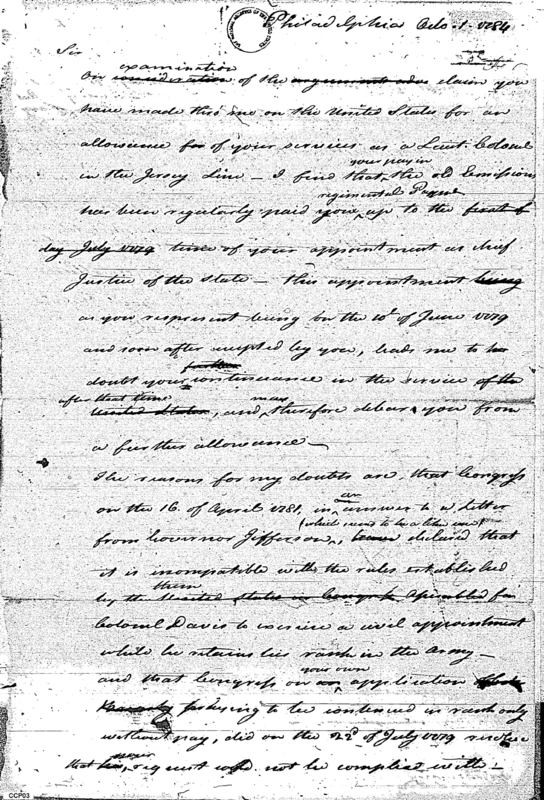 Philadelphia Octo. 1. 1784
Sir
examination
On consideration of the arguments claim you
have made thro me on the United States for an
allowance for of your services as a Lieut. Colonel
your pay in
in the Jersey Line — I find that the old Emissions
regimental Paymr
has been regularly paid you, up to the first of
day July 1779 time of your appointment as chief
Justice of the State — this appointment being
as you represent being on the 10th of June 1779
and soon after accepted by you, leads me to
further
doubt your continuance in the service of the
after that time may
United States, and therefore debar you from
a further allowance —
The reasons for my doubts are, that Congress
an
on the 16. of April 1781, in answer to a Letter
(which seems to be a like case)
from Governor Jefferson, have declared that
it is incompatible with the rules established
them
by the United States in Congress Assembled for
Colonel Davis to exercise a civil appointment
while he retains his rank in the Army —
your own
and that Congress on an application
for asking to be continued in rank only
without pay, did on the 22d of July 1779 resolve
that request not be complied with —
CCP03